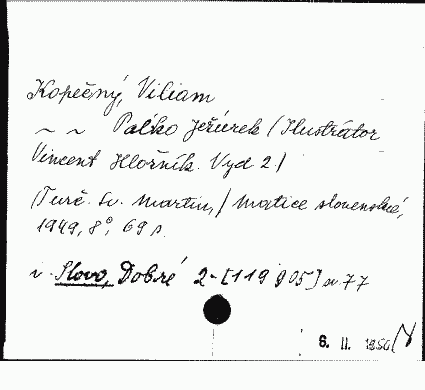 Kopečný, Viliam
~ ~ Paľko Ježúrek / Ilustrátor
Vincent Hložník. Vyd 2 /
(Turč. Sv. Martin, / Matice slovenské,
1949, 8°, 69 s.
v. Slovo, Dobré 2-[119 905] a 77
6. II. 1956